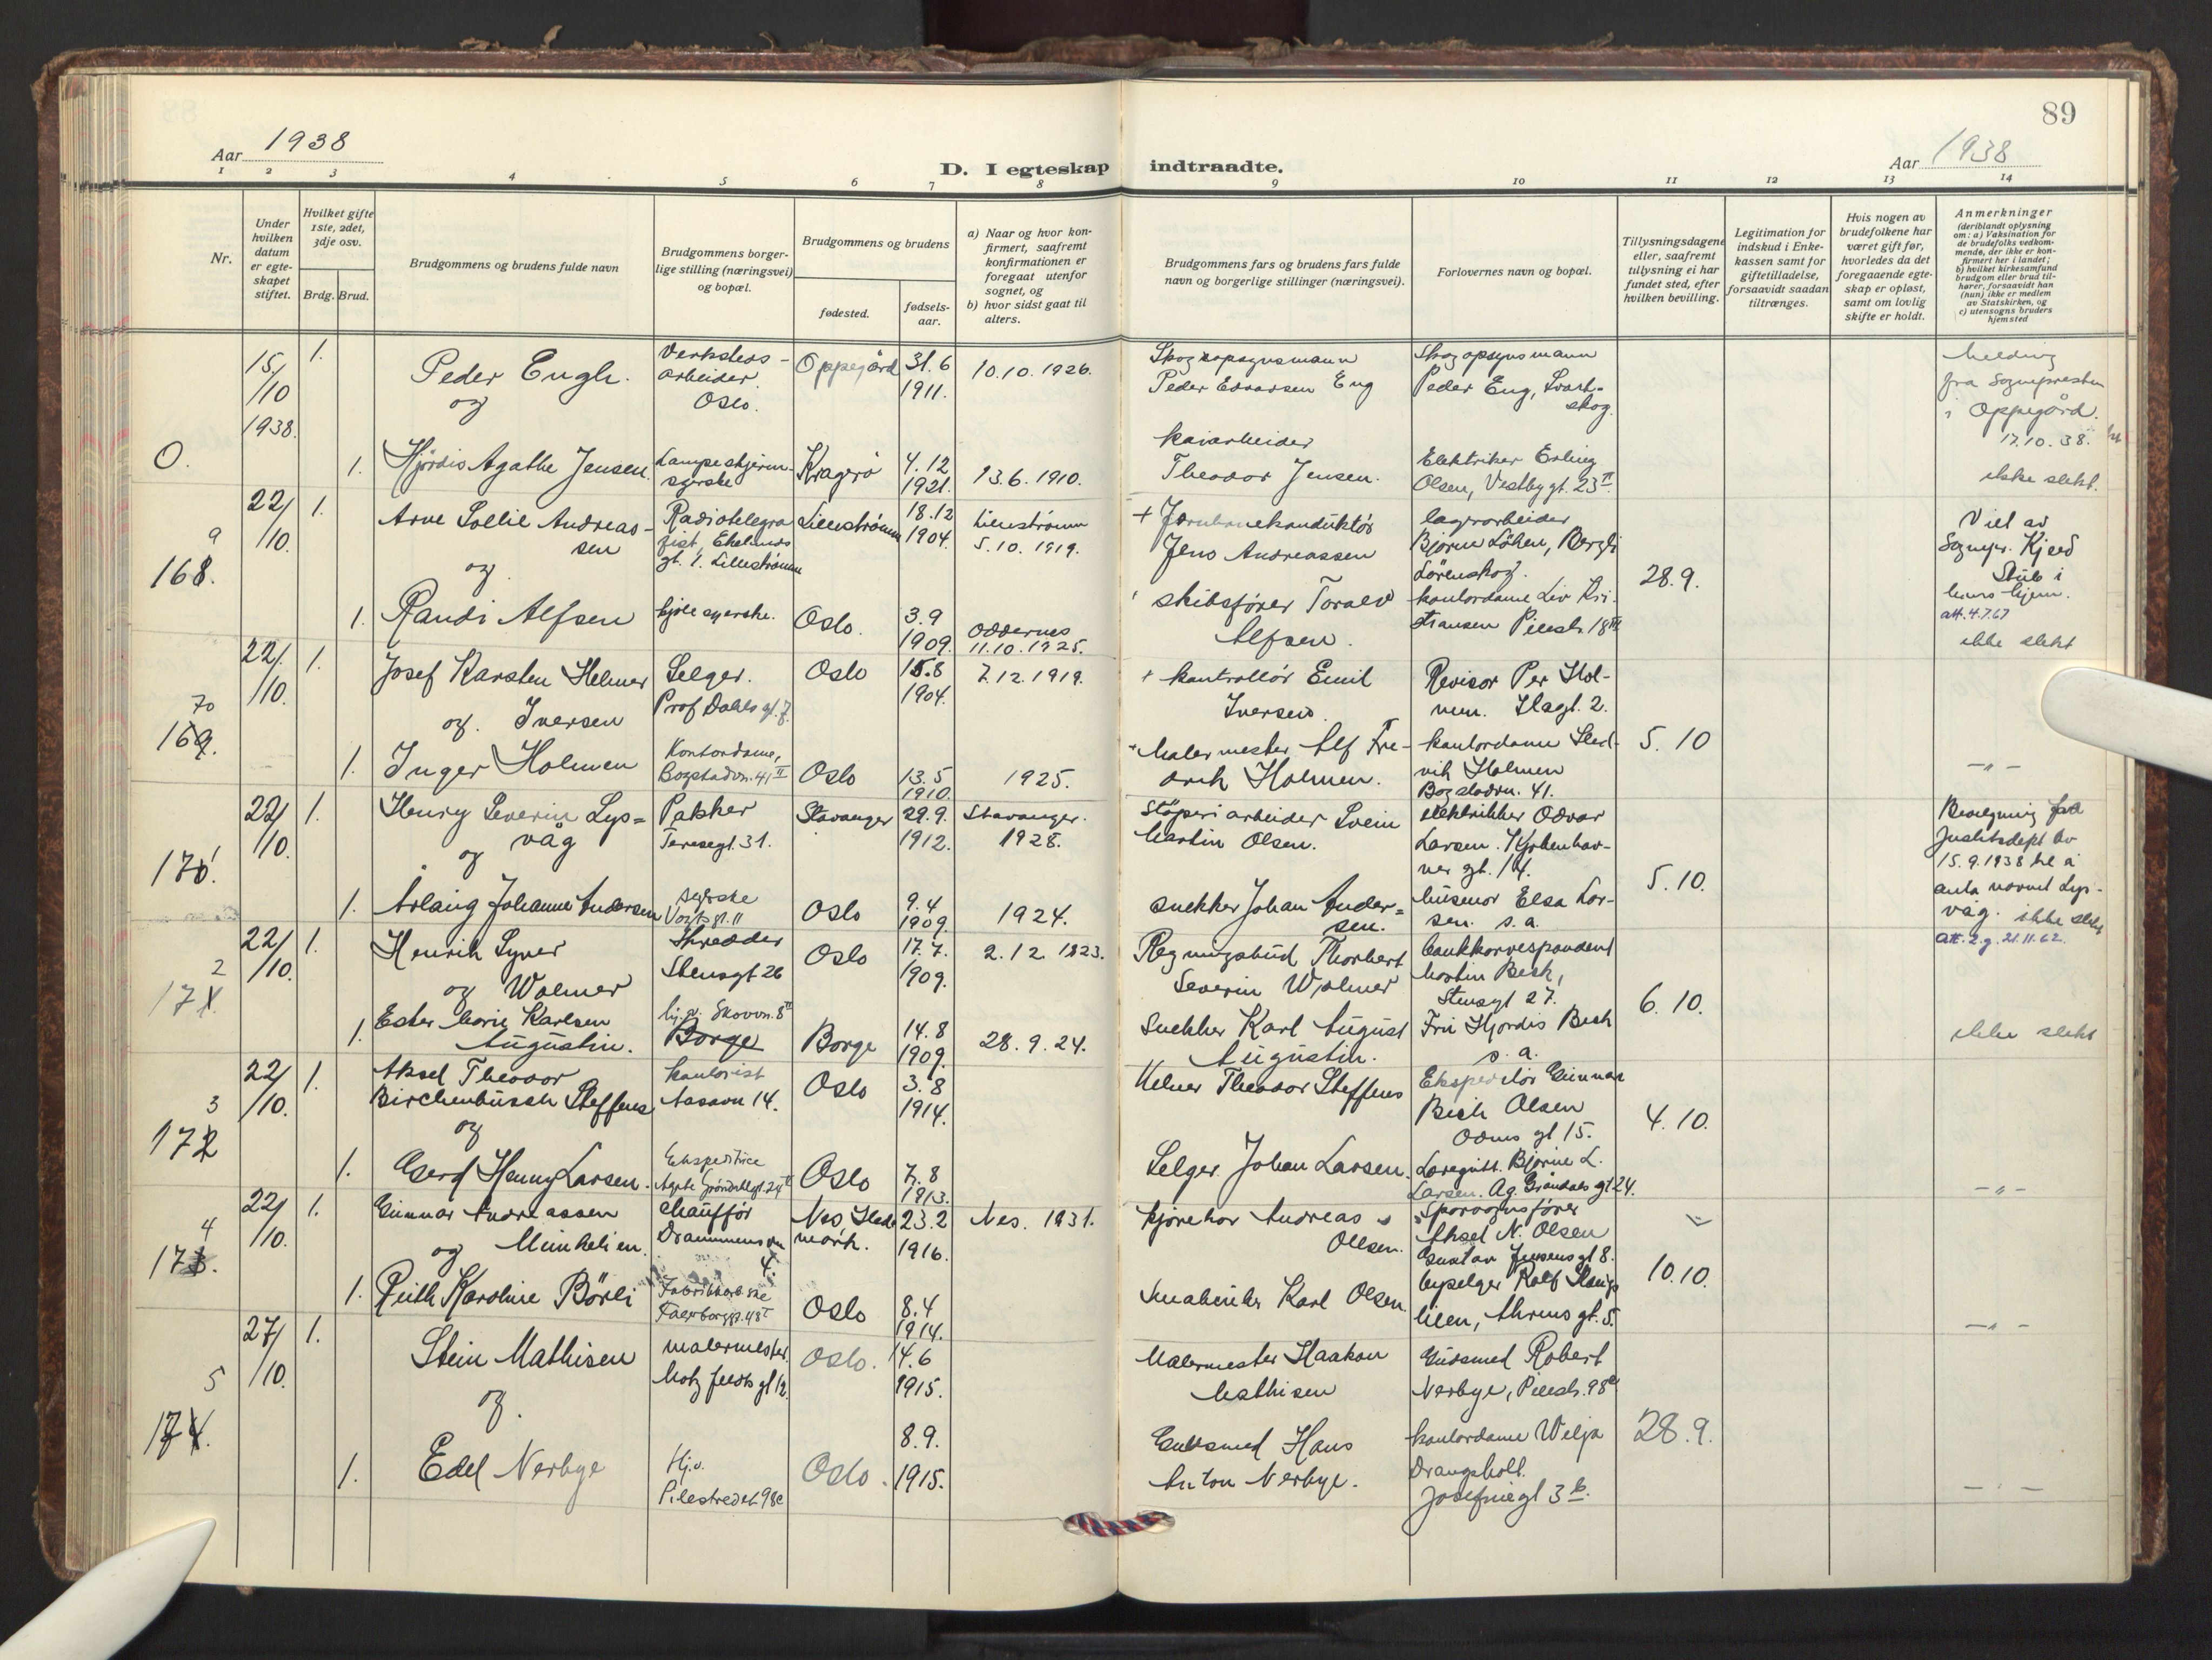 89
Aar 1938
D. I egteskap indtraadte.
Aar 1938
1 2 3 4 5 6 7 8 9 10 11 12 13 14
Nr.
Under
hvilken
datum
er egte-
skapet
stiftet.
Hvilket gifte
1ste, 2det,
3dje osv.
Brdg. Brud.
Brudgommens og brudens fulde navn
Brudgommens borger-
lige stilling (næringsvei)
og bopæl.
Brudgommens og brudens
fødested.
fødsels-
aar.
a) Naar og hvor kon-
firmert, saafremt
konfirmationen er
foregaat utenfor
sognet, og
b) hvor sidst gaat til
alters.
Brudgommens fars og brudens fars fulde
navn og borgerlige stillinger (næringsvei).
Forlovernes navn og bopæl.
Tillysningsdagene
eller, saafremt
tillysning ei har
fundet sted, efter
hvilken bevilling.
Legitimation for
indskud i Enke-
kassen samt for
giftetilladelse,
forsaavidt saadan
tiltrænges.
Hvis nogen av
brudefolkene har
været gift før,
hvorledes da det
foregaaende egte-
skap er opløst,
samt om lovlig
skifte er holdt.
Anmerkninger
(deriblandt oplysning
om: a) Vaksination for
de brudefolks vedkom-
mende, der ikke er kon-
firmert her i landet;
b) hvilket kirkesamfund
brudgom eller brud til-
hører, forsaavidt han
(hun) ikke er medlem
av Statskirken, og
c) utensogns bruders
hjemsted
0.
15/
/10
1938.
1.
Peder Engh.
og
Verksteds-
arbeider.
Oslo.
Oppegård
31.6
1911.
10.10.1926.
Skogopsynsmann
Peder Edvardsen Eng
Skogopsynsmann
Peder Eng, Svart-
skog.
Melding
fra Sognepresten
i Oppegård.
17.10.38.
1.
Hjördis Agathe Jensen.
Lampeskjerm-
syerske
Kragerö
4.12
1921.
13.6.1910.
kaiarbeider
Theodor Jensen.
Elektriker Erling
Olsen, Vestbygt. 23 II.
ikke slekt.
9
168.
22/
/10.
1.
Arne Sollie Andreas-
sen
og
Radiotelegra
fist, Ekelunds
gt. 1. Lilleström
Lilleström
18.12
1904.
Lilleström
5.10.1919.
+ Jernbanekonduktör
Jens Andreassen
lagerarbeider
Björn Löken, Bergli
Lörenskog.
28.9.
Viet av
Sognepr. Kjeld
Stub i
hans hjem.
att. 4.7.67
1.
Randi Alfsen
kjolesyerske.
Oslo.
3.9
1909.
Oddernes
11.10.1925.
skibsförer Toralv
Alfsen.
kontordame Liv Kri-
stiansen Pilestr. 18 III
ikke slekt
70
169.
22/
/10.
1.
Josef Karsten Helmer
og. Iversen
Selger.
Prof Dahls gt. 7.
Oslo
15.8
1904.
7.12.1919.
+ kontrollör Emil
Iversen.
Revisor Per Hol-
men. Ilagt. 2.
5.10
1.
Inger Holmen
Kontordame,
Bogstadvn. 41 II
Oslo
13.5
1910.
1925.
+ Malermester Alf Fre-
drik Holmen.
kontordame Sled-
vik Holmen
Bogstadvn. 41.
-"-
1
170.
22/
/10.
1.
Henry Severin Lys=
våg
og
Pakker
Teresegt. 31.
Stavanger
29.9.
1912.
Stavanger.
1928.
Stöperiarbeider Svein
Martin Olsen.
elektrikker Odvar
Larsen. Kjöbenhav-
ner gt. 14.
5.10.
Bevilgning fra
Justitsdept av
15.9.1938 til å
anta navnet Lys-
våg. ikke slekt
att. 2.g. 21.11.62.
1.
Aslaug Johanne Andersen
syerske
Vogts gt. 11
Oslo
9.4
1909.
1924.
snekker Johan Ander=
sen.
husmor Elsa Lar-
sen. s.a.
2
171.
22/
/10.
1.
Henrik Syver
og Wolmer
Skredder
Stensgt 26
Oslo
17.7.
1909.
2.12.1923.
Regningsbud Thorbert
Severin Wolmer
bankkorrespondent
Martin Bech,
Stensgt 27.
6.10.
1.
Ester Marie Karlsen
Augustin.
Skovvn. 8 II
Borge
Borge
14.8
1909.
28.9.24.
Snekker Karl August
Augustin.
Fru Hjördis Bech
s.a.
ikke slekt
3
172
22/
/10.
1.
Aksel Theodor
Birchenbusch Steffens
og
kontorist
Aasavn 14.
Oslo
3.8
1914.
Kelner Theodor Steffens
Ekspeditör Gunnar
Bech Olsen
Odins gt 15.
4.10.
1.
Gerd Henny Larsen.
Ekspeditrice
Agate Gröndahlsgt. 24 II
Oslo
7.8
1913.
Selger Johan Larsen.
Laregutt. Bjarne L.
Larsen. Ag. Gröndals gt 24.
-"-
4
173.
22/
/10.
1.
Gunnar Andreassen
og Munkelien.
Chaufför
Drammensvn
4.
Nes Hede
mark.
23.2
1916.
Nes. 1931.
kjörekar Andreas
Olsen.
Sporvognsförer
Aksel N. Olsen
Gustav Jensens gt 8.
10.10.
1.
Ruth Karoline Börli
Fabrikkarb.ske
Faerborggt. 48 I
Oslo
8.4
1914.
Smabruker Karl Olsen.
bypelger Rolf Haug
lien, Ahrens gt. 5.
-"-
5
174.
27/
/10.
1.
Stein Mathisen
og.
malermester
Motzfeldts gt 12.
Oslo.
14.6
1915.
Malermester Haakon
Mathisen
Gulsmed Robert
Nerbye, Pilestr. 98c
28.9.
1.
Edel Nerbye
Hj.v.
Pilestredet 98c
Oslo.
8.9.
1915.
Gullsmed Hans
Anton Nerbye.
kontordame Velja
Drangsholt.
Josefinegt 3 b.
-"-